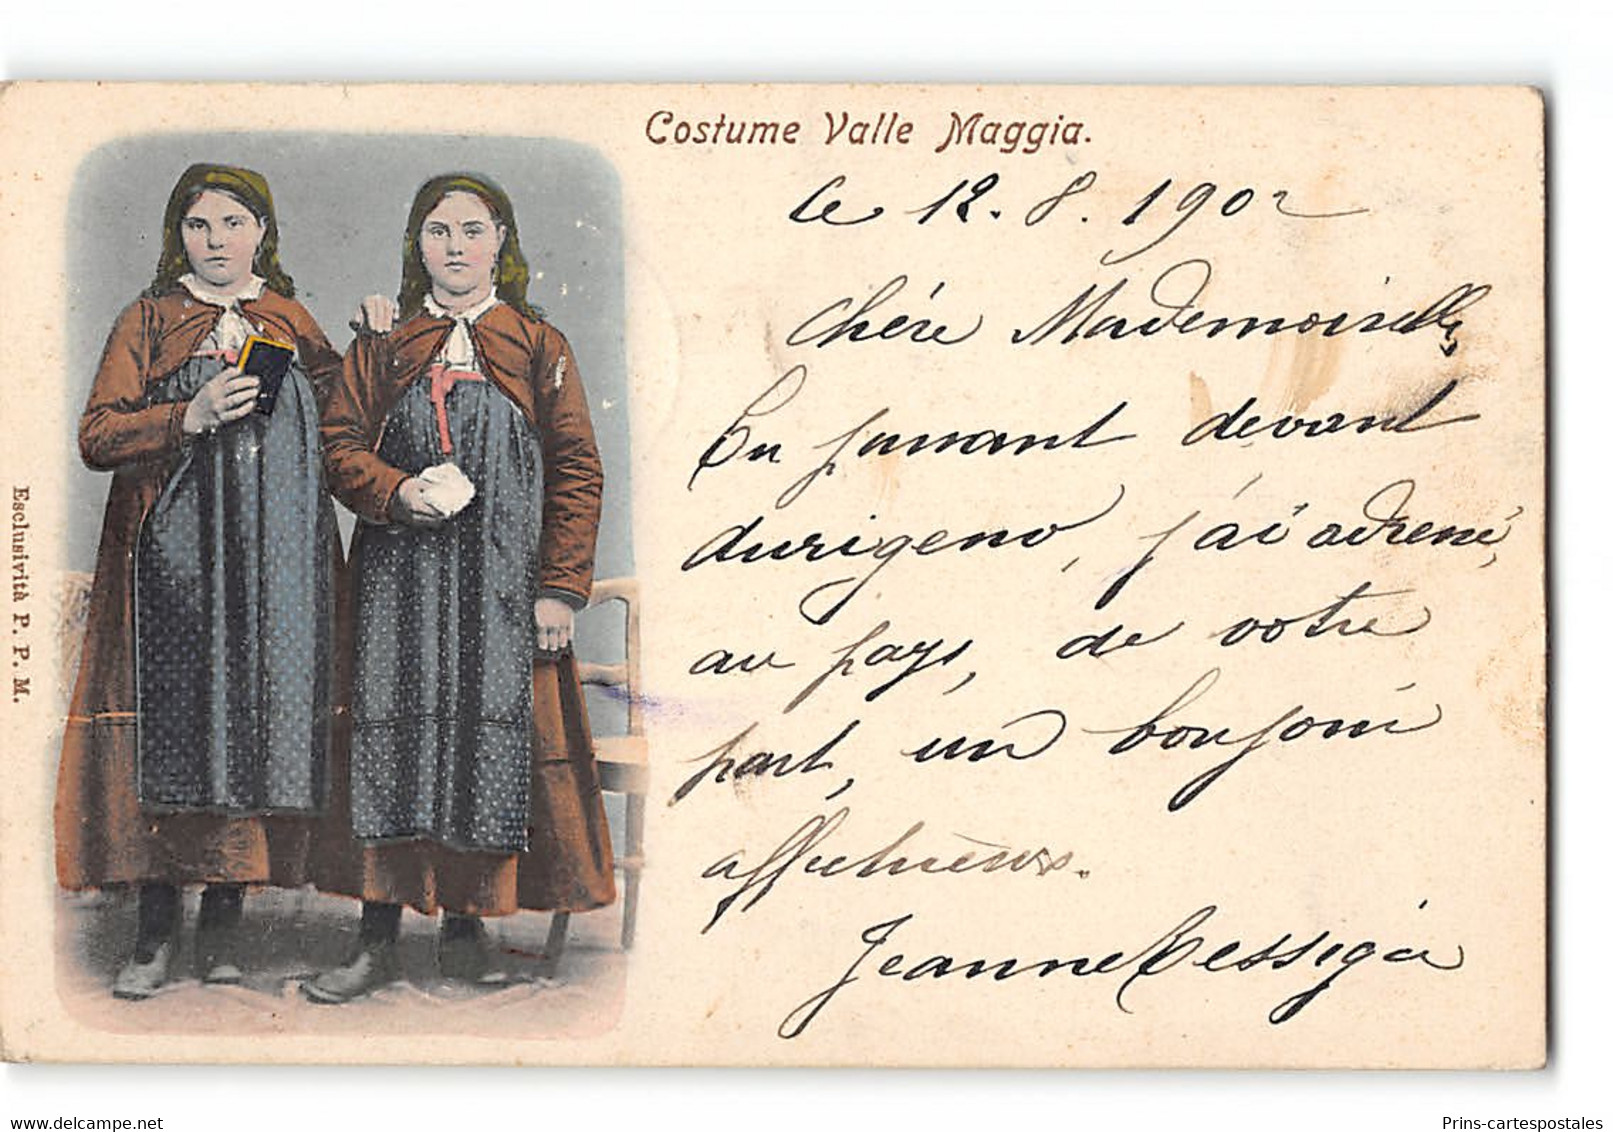 Costume Valle Maggia.
le 12. 8. 1902
Chère Mademoiselle,
En passant devant
j'ai adressé,
au pays, de votre
part, un bonjour
affectueux.
Jeanne
Esclusività P. P. M.
Prins-cartespostales